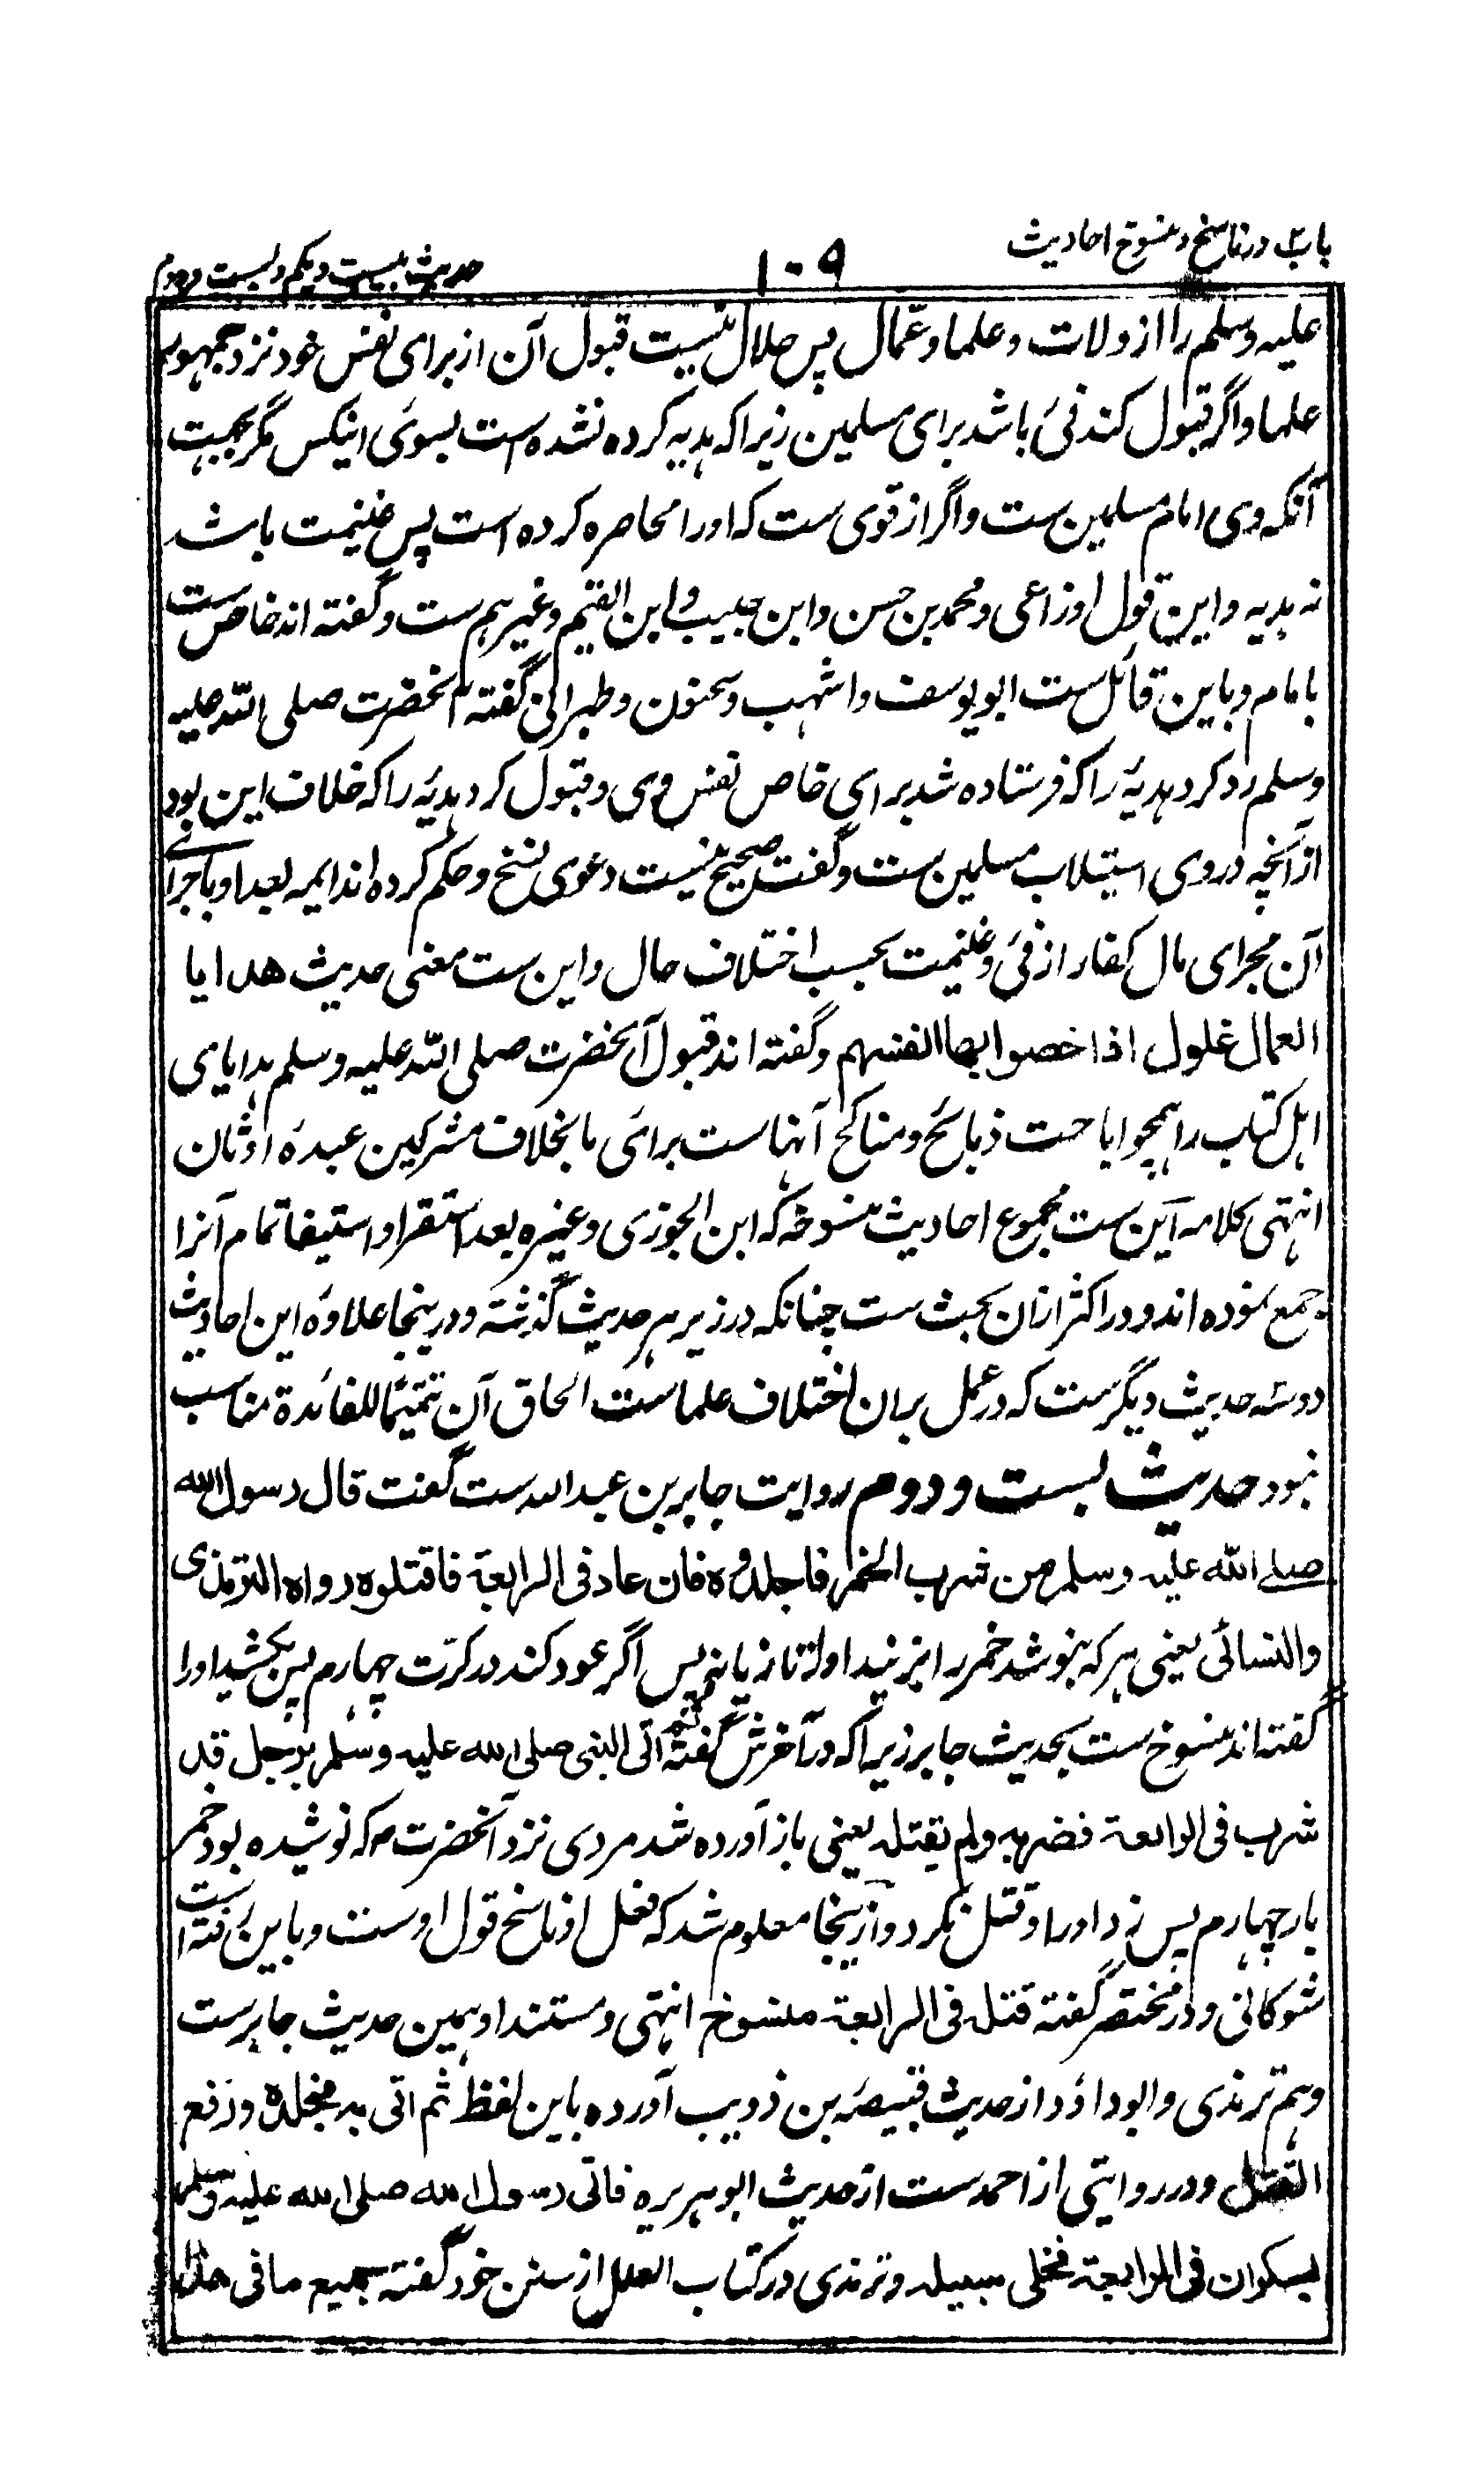 باب۲ در ناسخ و منسوخ احادیث
۱۰۹
حدیث بیست و یکم و بست و دوم
علیه وسلم را از ولات و علما و عمّال پس حلال نیست قبول آن از برای نفس خود نزد جمهور
علما و اگر قبول کند فئ باشد برای مسلمین زیرا که هدیه کرده نشده است بسوی اینکس مگر بجهت
آنکه وی امام مسلمین ست و اگر از قومی ست که او را محاصره کرده است پس غنیمت باشد
نه هدیه و این قول اوزاعی و محمد بن حسن و ابن حبیب و ابن القیم و غیرهم ست و گفته اند خاص ست
بامام و باین قائل ست ابو یوسف و اشهب و سحنون و طبرانی گفته آنحضرت صلی الله علیه
وسلم رد کرد هدیۀ را که فرستاده شد برای خاص نفس وی و قبول کرد هدیۀ را که خلاف این بود
از آنچه در وی استیلاب مسلمین ست و گفت صحیح نیست دعوی نسخ و حکم کرده اند ایمه بعد او باجرای
آن مجرای مال کفار از فئ و غنیمت بحسب اختلاف حال و این ست معنی حدیث هدایا
العمال غلول اذا خصوا بها انفسهم و گفته اند قبول آنحضرت صلی الله علیه وسلم هدایای
اهل کتاب را همچو اباحت ذبائح و مناکح آنهاست برای ما بخلاف مشرکین عبدۀ اوثان
انتهی کلامه این ست مجموع احادیث منسوخه که ابن الجوزی و غیره بعد استقرا و استیفا تمام آنرا
جمع نموده اند و در اکثر ازان بحث ست چنانکه در زیر هر حدیث گذشته و درینجا علاوۀ این احادیث
دوسه حدیث دیگرست که در عمل بران اختلاف علماست الحاق آن تتمیما للفائدة مناسب
نبود حدیث بست و دوم روایت جابر بن عبد الله ست گفت قال رسول الله
صلى الله عليه وسلم من شرب الخمر فاجلدوه فان عاد فى الرابعة فاقتلوه رواه الترمذی
والنسائی یعنی هر که بنوشد خمر را بزنید او را تازیانه پس اگر عود کند در کرّت چهارم پس بکشید او را
گفته اند منسوخ ست بحدیث جابر زیرا که در آخرش گفته ثم اتى النبى صلى الله عليه وسلم برجل قد
شرب فى الرابعة فضربه ولم يقتله یعنی باز آورده شد مردی نزد آنحضرت م که نوشیده بود خمر
بار چهارم پس زد او را و قتل نکرد و ازینجا معلوم شد که فعل او ناسخ قول اوست و باین رفته است
شوکانی و در مختصر گفته قتله فی الرابعة منسوخ انتهی و مستند او همین حدیث جابرست
و هم ترمذی و ابوداؤد از حدیث قبیصه بن ذویب آورده باین لفظ ثم اتی به فجلده ورفع
القتل و در روایتی از احمدست از حدیث ابو هریره فاتى رسول الله صلى الله عليه وسلم
بسكران فى الرابعة فخلى سبيله و ترمذی در کتاب العلل از سنن خود گفته جمیع ما فی هذا